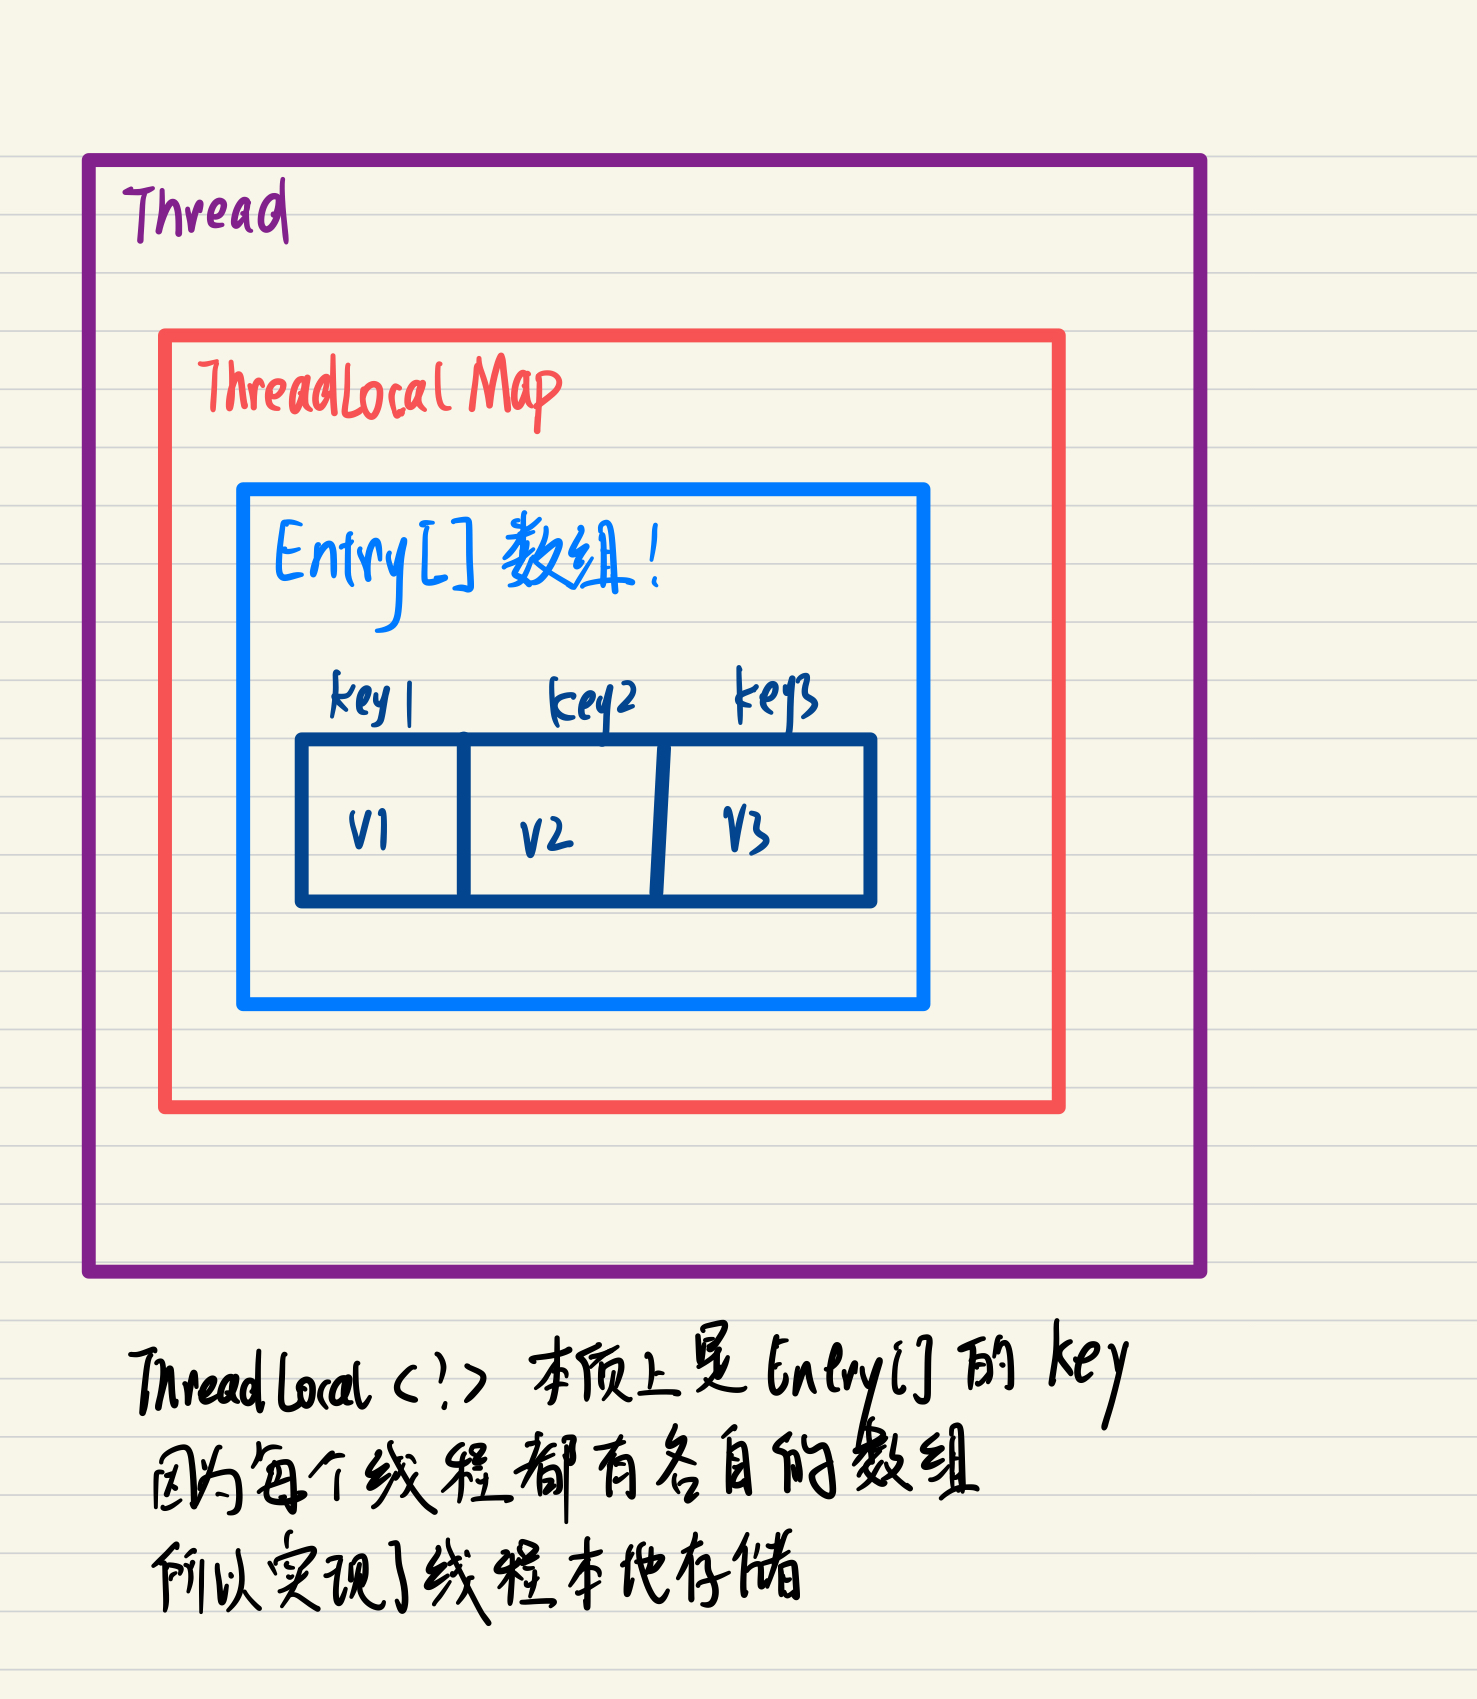 Thread
ThreadLocal Map
Entry[] 数组！
key1 key2 key3
V1 V2 V3
ThreadLocal<?> 本质上是 Entry[] 的 key
因为每个线程都有各自的数组
所以实现了线程本地存储